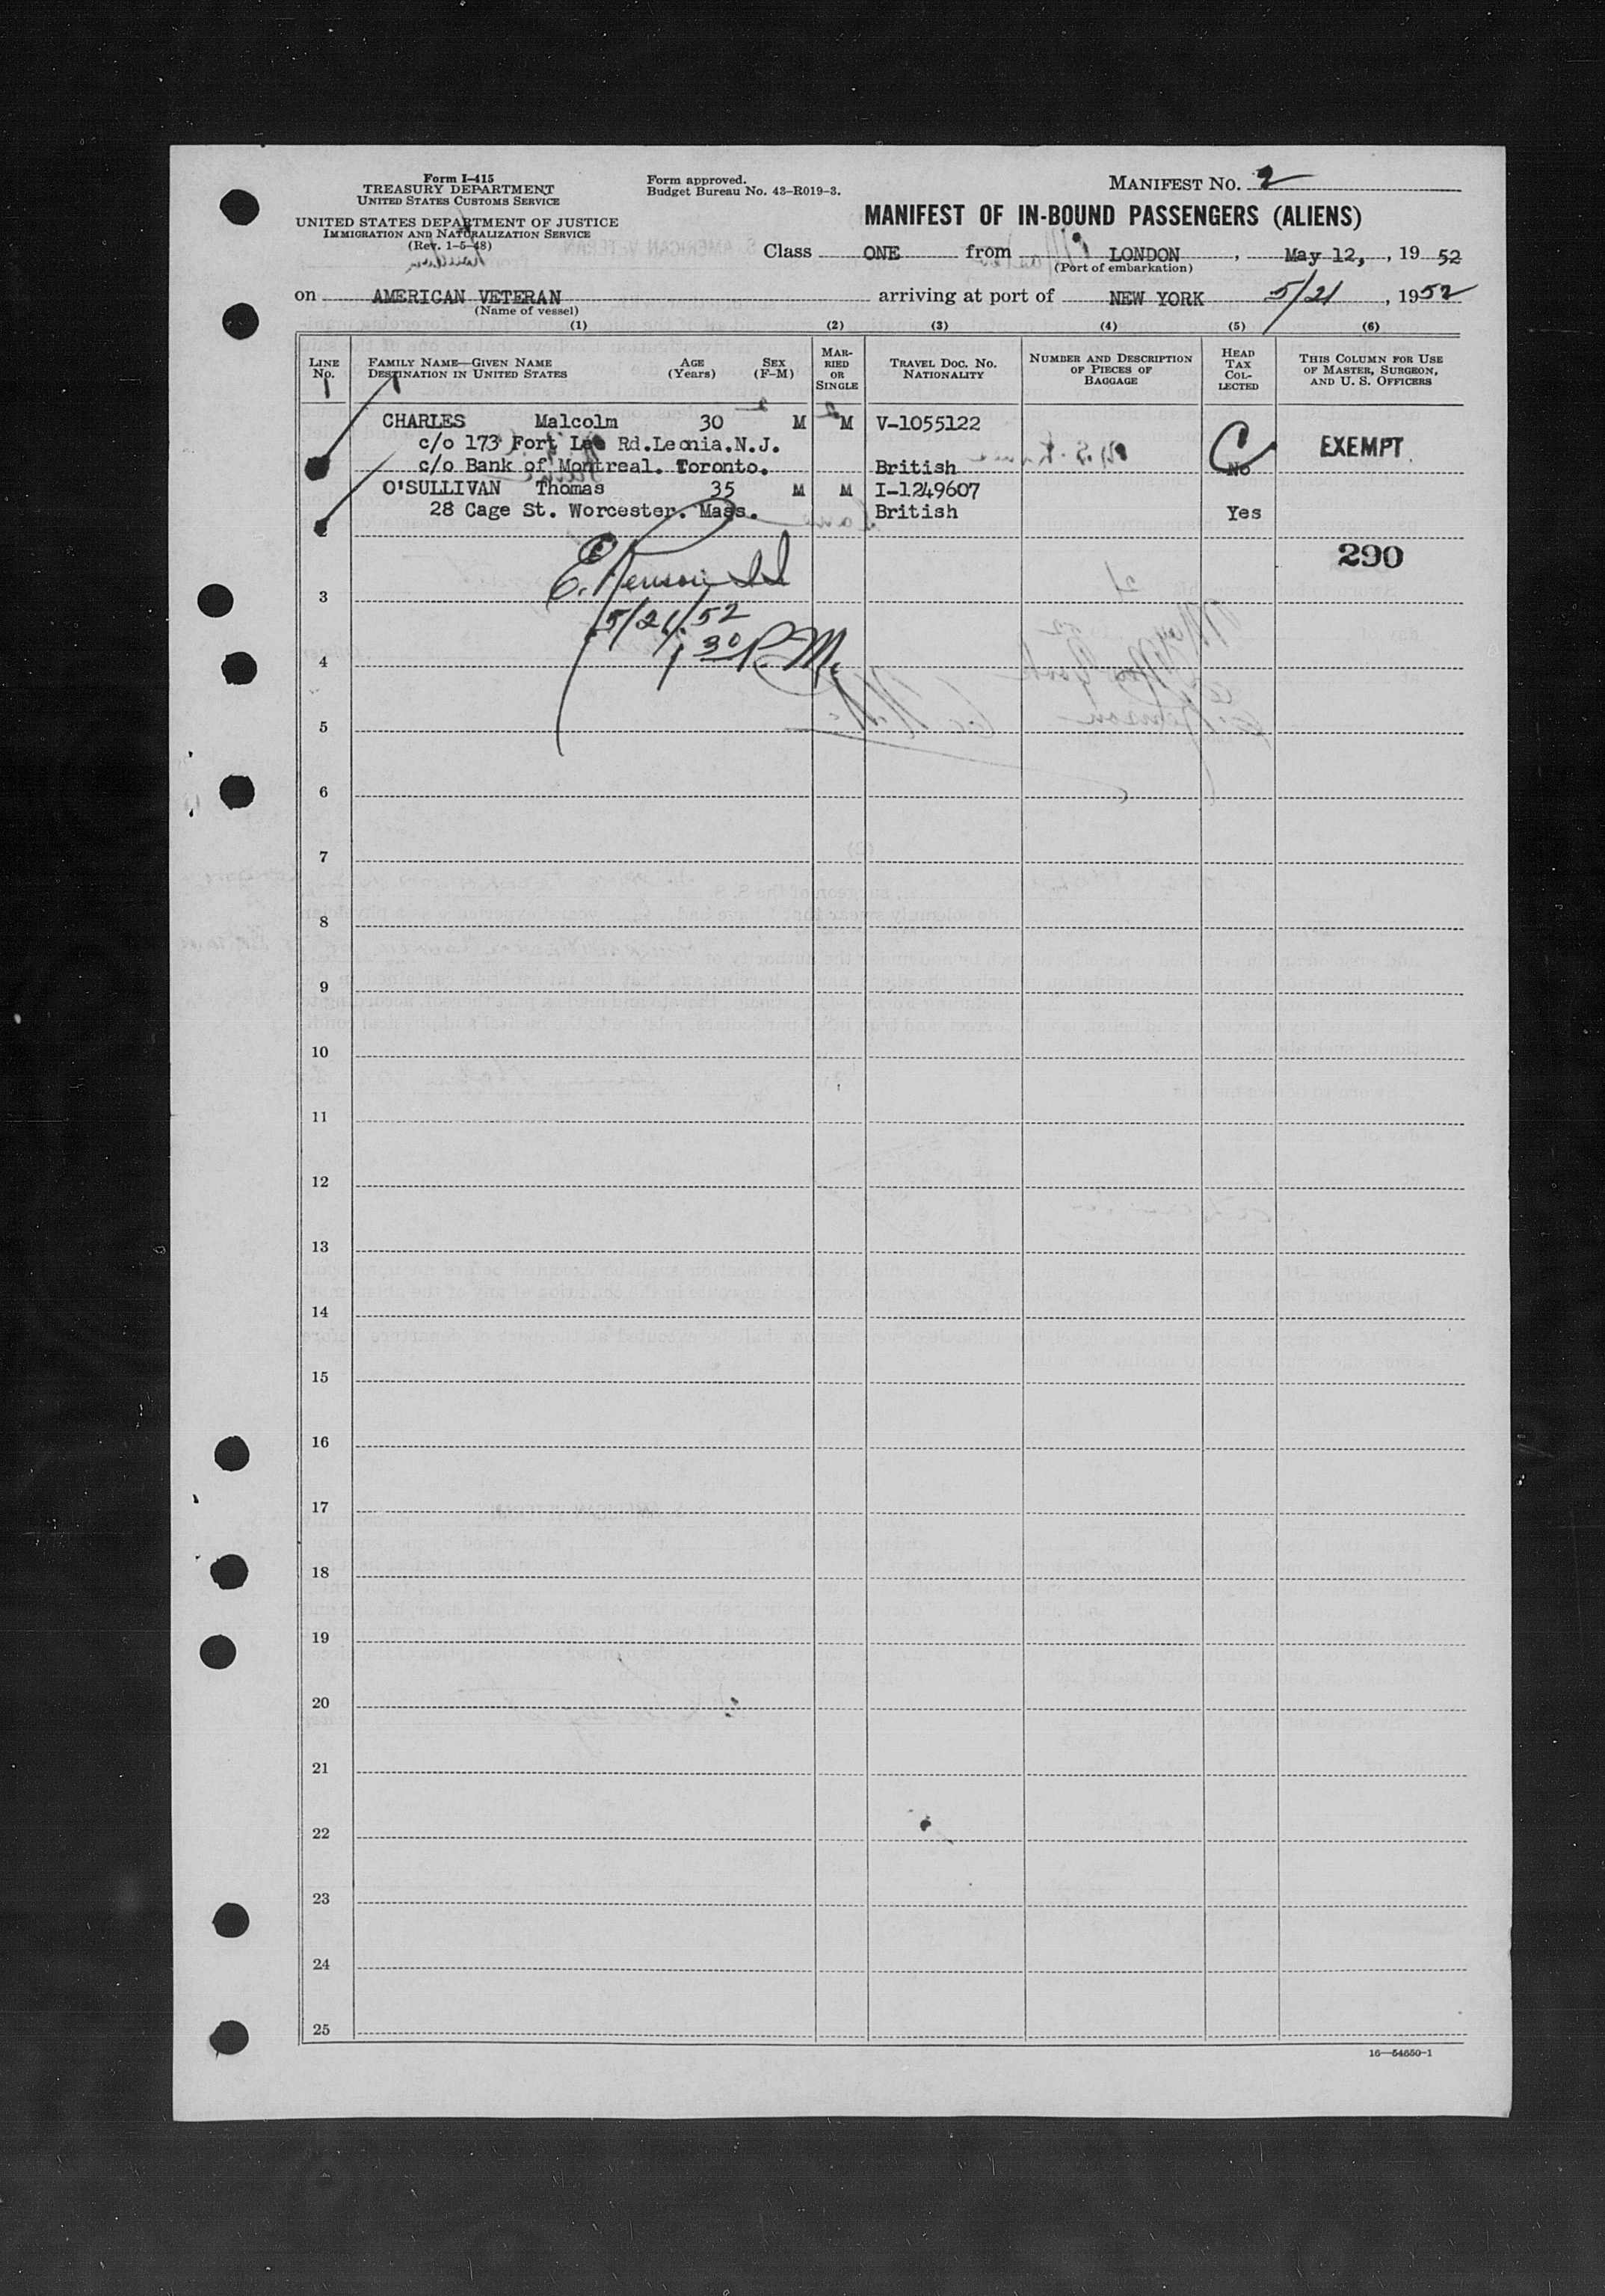 Form I-415
TREASURY DEPARTMENT
UNITED STATES CUSTOMS SERVICE
UNITED STATES DEPARTMENT OF JUSTICE
IMMIGRATION AND NATURALIZATION SERVICE
(Rev. 1-5-48)
Form approved.
Budget Bureau No. 43-R019-3.
MANIFEST NO. 2
MANIFEST OF IN-BOUND PASSENGERS (ALIENS)
Class ONE from LONDON, May 12, , 19 52
(Port of embarkation)
on AMERICAN VETERAN arriving at port of NEW YORK 5/21, 1952
(Name of vessel)
(1) (2) (3) (4) (5) (6)
LINE NO. FAMILY NAME—GIVEN NAME DESTINATION IN UNITED STATES AGE (Years) SEX (F-M) MARRIED OR SINGLE TRAVEL DOC. NO. NATIONALITY NUMBER AND DESCRIPTION OF PIECES OF BAGGAGE HEAD TAX COLLECTED THIS COLUMN FOR USE OF MASTER, SURGEON, AND U. S. OFFICERS
1 CHARLES Malcolm 30 M M V-1055122
c/o 173 Fort Lee Rd.Leonia.N.J. EXEMPT
c/o Bank of Montreal. Toronto. British No
O'SULLIVAN Thomas 35 M M I-1249607
28 Cage St. Worcester. Mass. British Yes
290
3
5/21/52
4 1 30 P.M.
5
6
7
8
9
10
11
12
13
14
15
16
17
18
19
20
21
22
23
24
25
16—54650-1